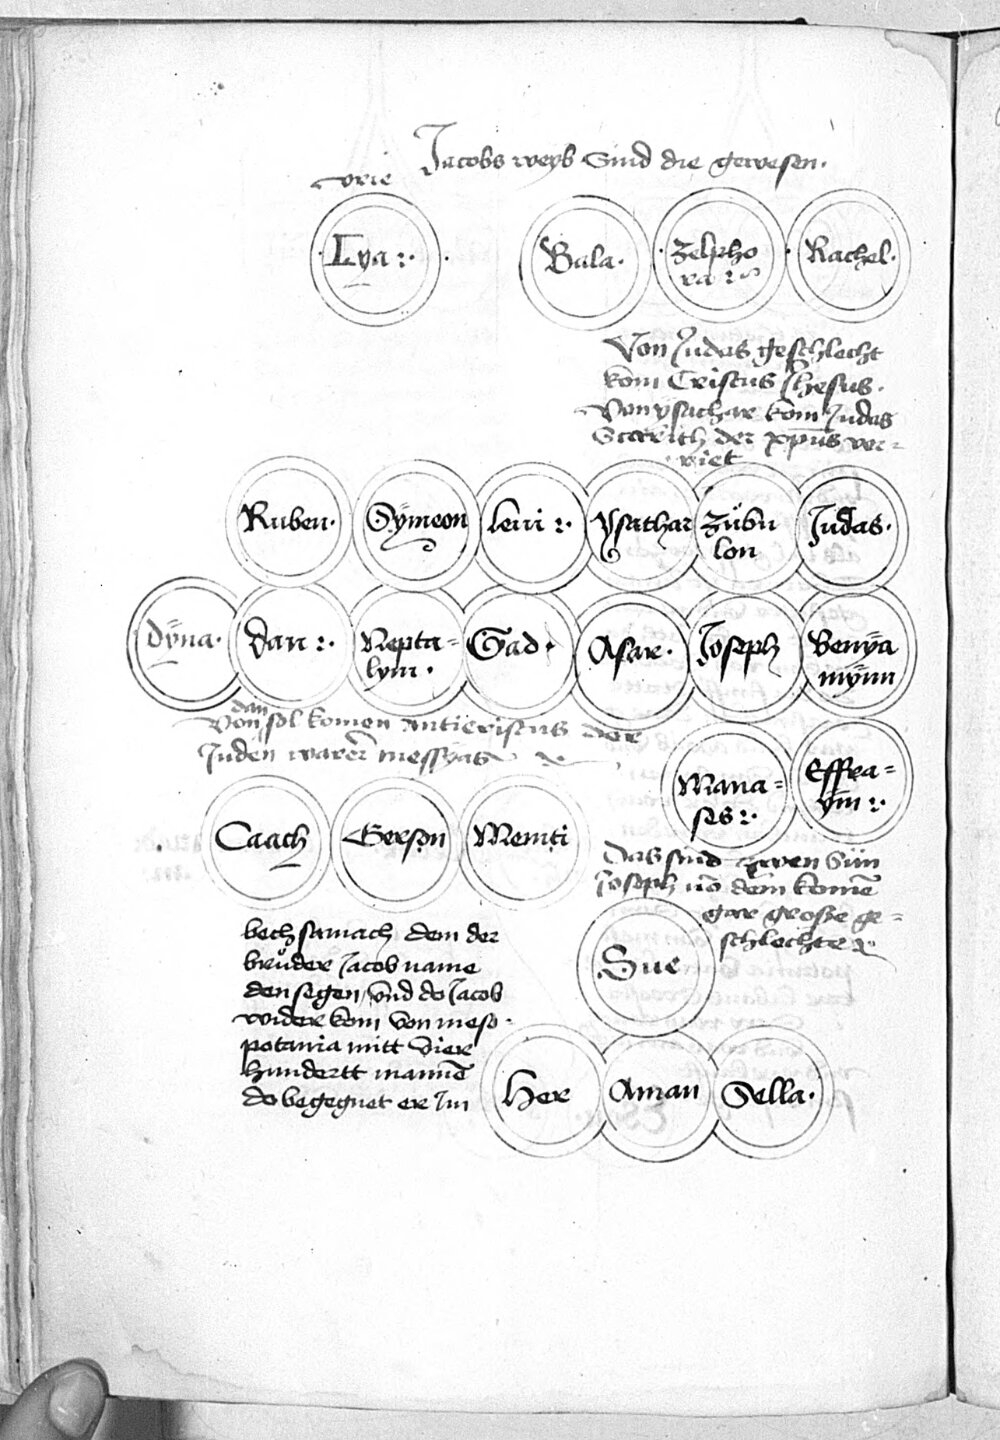 Jacobs weyb Sind die gewesen.
vrie
Lya
Bala.
Zelpho
ra
Rachel.
Von Judas geschlecht
kom Cristus Jhesus.
Von ysachar kom Judas
Scarioth der xpus ver-
riet
Ruben.
Sÿmeon
leui
Ysachar
Zübu
lon
Judas.
dÿna.
dan
Nepta-
lym.
Gad.
Asar.
Joseph
Benÿa
mÿnn
dan
Von sol komen Anticristus der
Juden warer messyas
Mana-
ses
Effra-
ÿm
Caach
Gerson
Das sind zwen Sün
Joseph von dem komen
gar große ge-
schlechte
bech samach dem der
brüder Jacob name
den segen Vnd do Jacob
wider kom von meso-
potania mitt Vier
hundertt mannē
do begegnet er Im
Sue
Her
Aman
Sella.